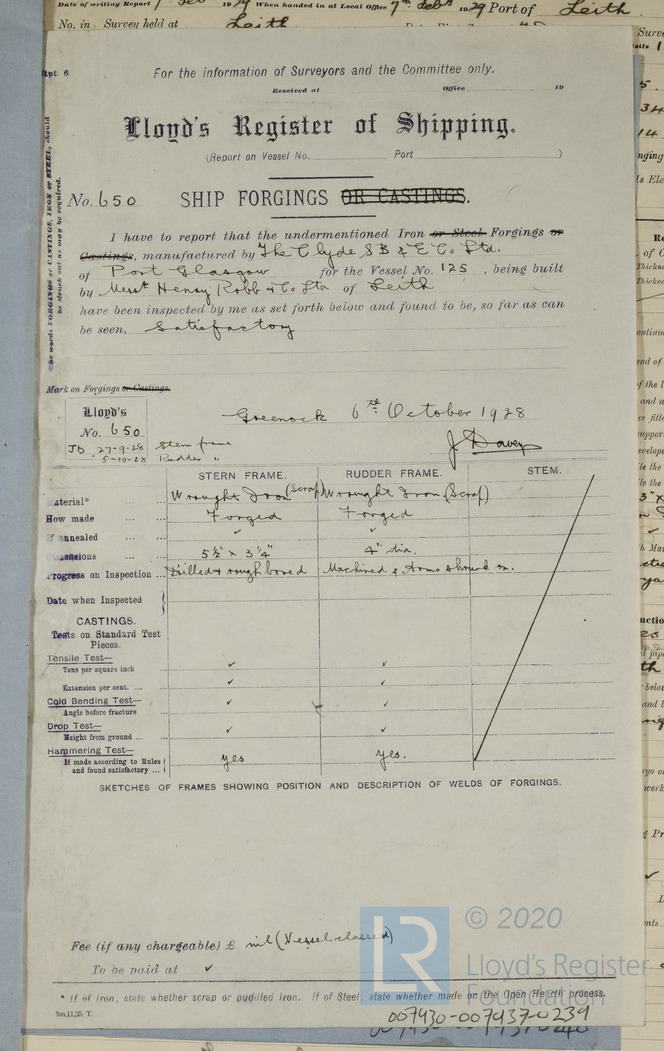 Date of writing Report 19 29 When handed in at Local Office 7th Feby 1929 Port of Leith
No. in Survey held at Leith
Rpt. 6.
For the information of Surveyors and the Committee only.
Received at Office 19
Lloyd's Register of Shipping.
(Report on Vessel No. Port )
No. 650 SHIP FORGINGS OR CASTINGS.
I have to report that the undermentioned Iron or Steel Forgings or
Castings, manufactured by The Clyde S B & E Co. Ltd.
of Port Glasgow for the Vessel No. 125, being built
by Messrs Henry Robb & Co Ltd of Leith
have been inspected by me as set forth below and found to be, so far as can
be seen, Satisfactory
The words FORGINGS or CASTINGS, IRON or STEEL, should
be struck out as may be required.
Mark on Forgings or Castings.
Lloyd's
No. 650
JD 27-9-28 Stern frame
5-10-28 Rudder "
Greenock 6th October 1928
J Davey
STERN FRAME. RUDDER FRAME. STEM.
Material* ... Wrought Iron (Scrap) Wrought Iron (Scrap)
How made ... Forged Forged
If annealed ... ✓ ✓
Dimensions ... 5½" x 3¼" 4" dia.
Progress on Inspection ... Drilled & rough bored Machined & Arms shrunk on.
Date when Inspected
CASTINGS.
Tests on Standard Test
Pieces.
Tensile Test—
Tons per square inch ✓ ✓
Extension per cent. ... ✓ ✓
Cold Bending Test—
Angle before fracture ✓ ✓
Drop Test—
Height from ground ... ✓ ✓
Hammering Test—
If made according to Rules
and found satisfactory ... yes yes.
SKETCHES OF FRAMES SHOWING POSITION AND DESCRIPTION OF WELDS OF FORGINGS.
Fee (if any chargeable) £ nil (Vessel classed)
To be paid at ✓
* If of iron, state whether scrap or puddled iron. If of Steel, state whether made on the Open Hearth process.
3m,11,25. T.
LR
© 2020
Lloyd's Register
Foundation
007930-007937-0239